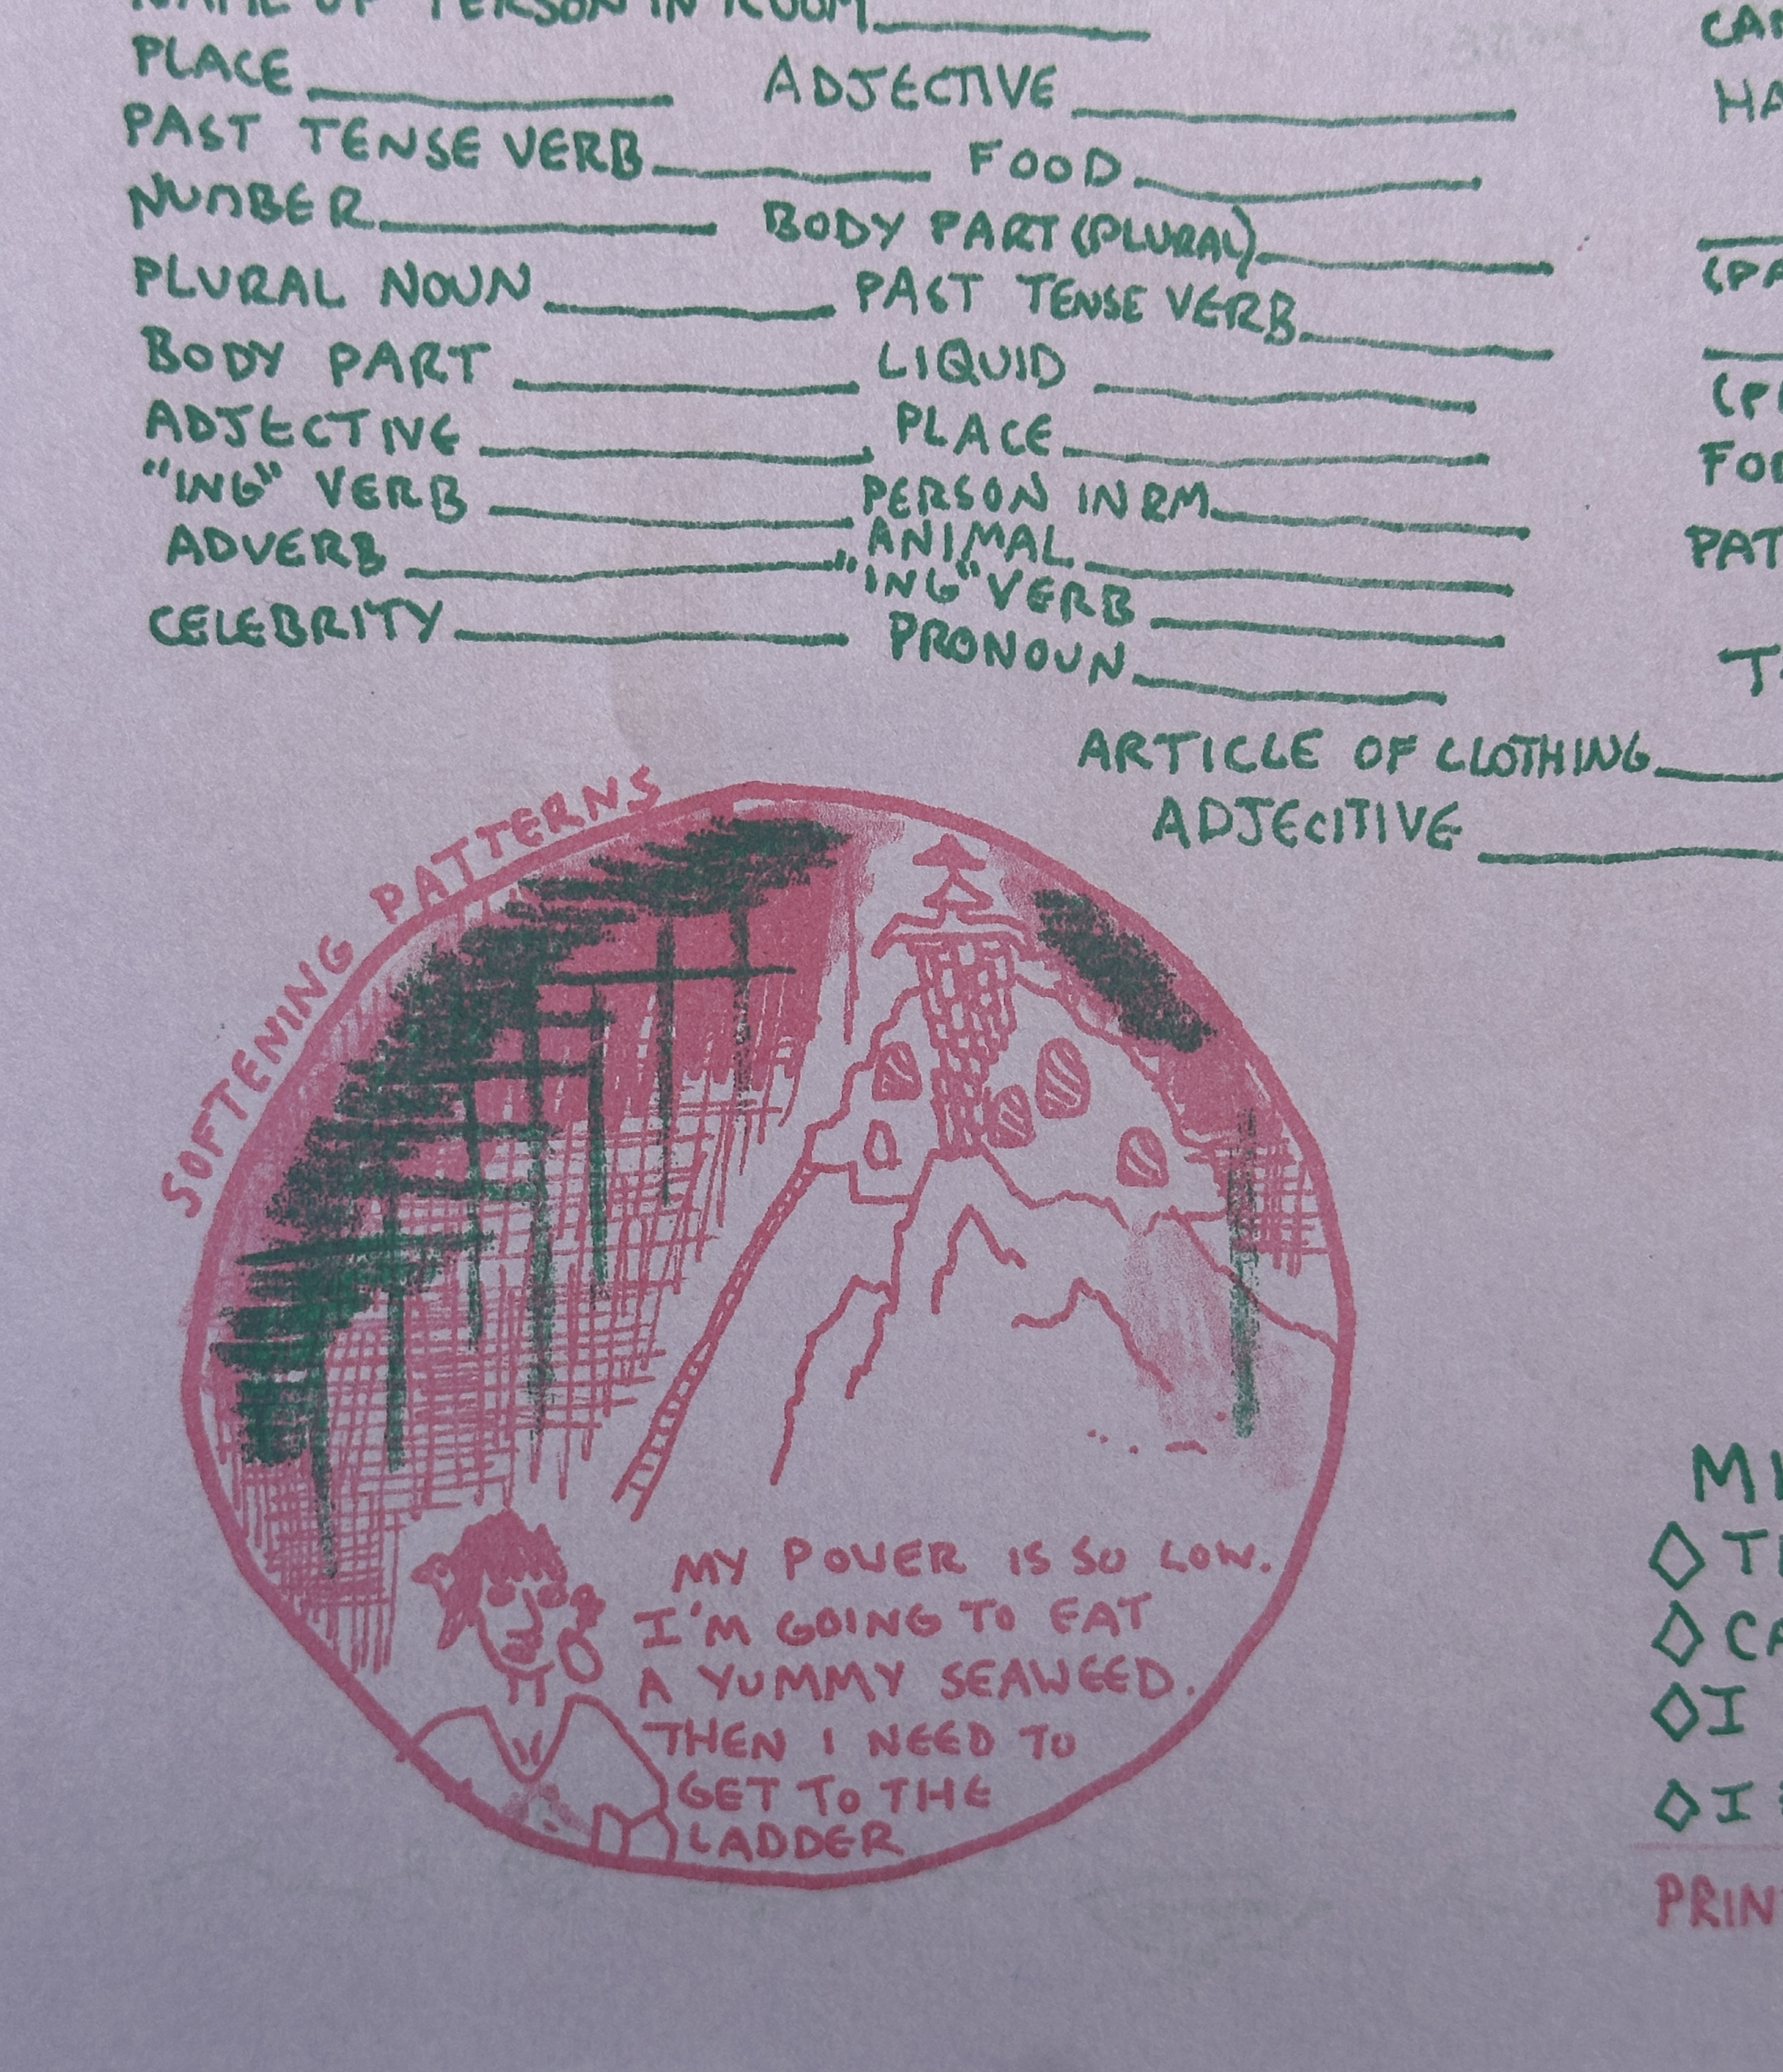 NAME OF PERSON IN ROOM
PLACE ADJECTIVE
PAST TENSE VERB FOOD
NUMBER BODY PART (PLURAL)
PLURAL NOUN PAST TENSE VERB
BODY PART LIQUID
ADJECTIVE PLACE
"ING" VERB PERSON IN RM
ADVERB ANIMAL
"ING" VERB
CELEBRITY PRONOUN
ARTICLE OF CLOTHING
ADJECITIVE
SOFTENING PATTERNS
MY POWER IS SO LOW.
I'M GOING TO EAT
A YUMMY SEAWEED.
THEN I NEED TO
GET TO THE
LADDER
I
I